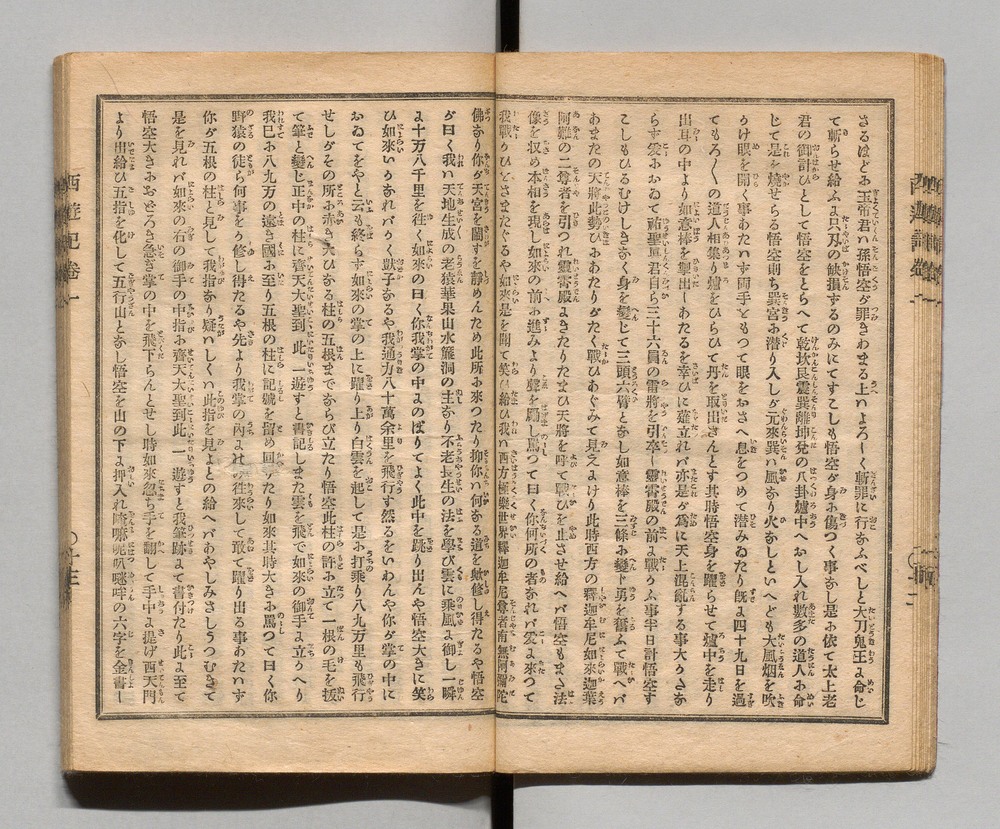 さるほどに玉帝君ハ孫悟空が罪きわまる上ハよろしく斬罪に行ふべしと大刀鬼王に命じ
て斬らせ給ふに只刃の缺損するのみにてすこしも悟空が身に傷つく事なし是に依て太上老
君の御計ひとして悟空をとらへて乾坎艮震巽離坤兌の八卦爐中へおし入れ數多の道人に命
じて是を燒せらる悟空則ち巽宮に潜り入しが元來巽ハ風なり火なしといへども大風烟を吹
うけ眼を開く事あたハず両手をもつて眼をおさへ息をつめて潜みゐたり既に四十九日を過
てもろ〳〵の道人相集り爐をひらひて丹を取出さんとす其時悟空身を躍らせて爐中を走り
出耳の中より如意棒を掣出しあたるを幸ひに薙立れバ亦是が爲に天上混亂する事大かたな
らず爰におゐて祐聖眞君自ら三十六員の雷將を引卒し靈霄殿の前に戰ふ事半日計悟空す
こしもひるむけしきなく身を變じて三頭六臂となし如意棒を三條に變じ勇を奮ふて戰へバ
あまたの天將此勢ひにあたりがたく戰ひあぐみて見えにけり此時西方の釋迦牟尼如來迦葉
阿難の二尊者を引つれ靈霄殿にきたりたまひ天將を呼て戰ひを止させ給へバ悟空もまた法
像を収め本相を現し如來の前に進みより聲を厲し罵つて曰く你何所の者なれバ爰に來つて
我戰ひをさまたぐるや如來是を聞て笑ハせ給ひ我ハ西方極樂世界釋迦牟尼尊者南無阿彌陀
佛なり你が天宮を閙すを靜めんため此所に來つたり抑你ハ何なる道を敷修し得たるや悟空
が曰く我ハ天地生成の老猿華果山水簾洞の主なり不老長生の法を學び雲に乘風に御し一瞬
に十万八千里を往く如來の曰く你我掌の中にのぼりてよく此中を跳り出んや悟空大きに笑
ひ如來いかなれバかく獃子なるや我通力八十萬余里を飛行す然るをいわんや你が掌の中に
おゐてをやと云も終らず如來の掌の上に躍り上り白雲を起して是に打乘り八九万里も飛行
せしがその所に赤き大ひなる柱の五根までならび立たり悟空此柱の許に立て一根の毛を拔
て筆と變じ正中の柱に齊天大聖到此一遊すと書記しまた雲を飛で如來の御手に立かへり
我已に八九万の遠き國に至り五根の柱に記號を留め回りたり如來其時大きに罵つて曰く你
野猿の徒ら何事をか修し得たるや先より我掌の内に往來して敢て躍り出る事あたハず
你が五根の柱と見しで我指なり疑ハしくハ此指を見よとの給へバあやしみさしうつむきて
是を見れバ如來の右の御手の中指に齊天大聖到此一遊すと我筆跡にて書付たり此に至て
悟空大きにおどろき急ぎ掌の中を飛下らんとせし時如來忽ち手を翻して手中に提げ西天門
より出給ひ五指を化して五行山となし悟空を山の下に押入れ唵嘛呢叭𠺗吽の六字を金書し
西遊記卷一
〇十三